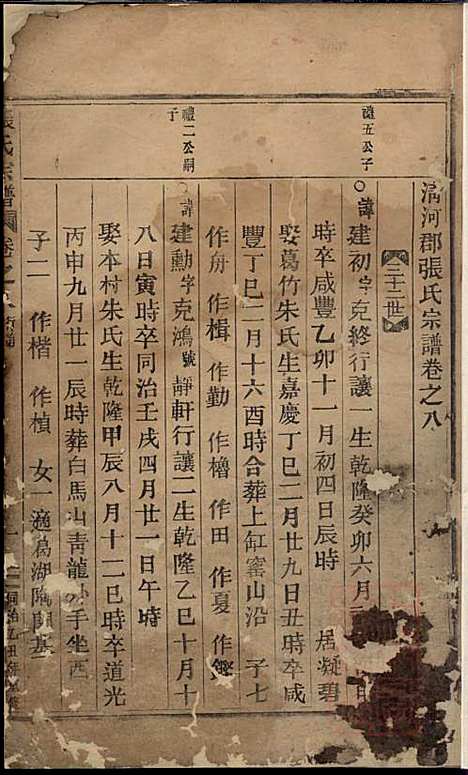 清河郡張氏宗譜卷之八
三十二世
禮五公子
○諱建初字克終行讓一生乾隆癸卯六月
時卒咸豐乙卯十一月初四日辰時 居凝碧
娶葛竹朱氏生嘉慶丁巳二月廿九日丑時卒咸
豐丁巳二月十六酉時合葬上缸窰山沿 子七
作舟 作楫 作勤 作櫓 作田 作夏 作鏗
禮二公嗣子
○諱建勳字克鴻號靜軒行讓二生乾隆乙巳十月十
八日寅時卒同治壬戌四月廿一日午時
娶本村朱氏生乾隆甲辰八月十二巳時卒道光
丙申九月廿一辰時葬白馬山青龍手坐西
子二 作楷 作楨 女一適葛湖陽
張氏宗譜 卷之
同治乙丑年